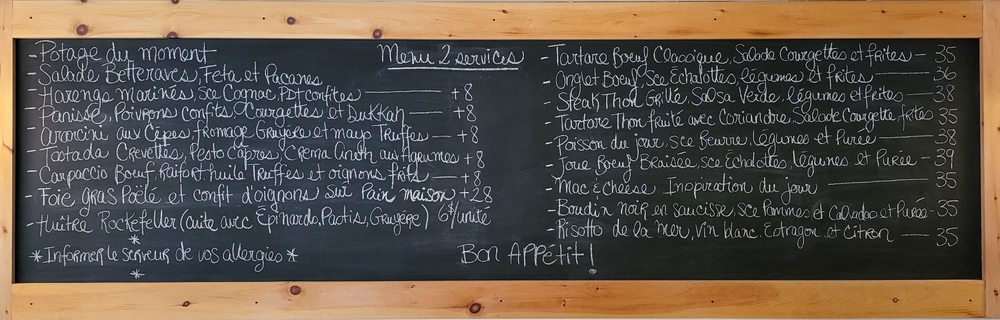 Menu 2 services
- Potage du moment
- Salade Betteraves, Feta et Pacanes
- Harengs Marinés, Sce Cognac, PDT confites +8
- Panisse, Poivrons confits, Courgettes et Dukkah +8
- Arancini aux Cèpes, fromage Gruyère et mayo Truffes +8
- Tostada Crevettes, Pesto Capres, Crema Aneth aux Agrumes +8
- Carpaccio Boeuf, Raifort huile Truffes et oignons frits +8
- Foie gras Poêlé et confit d'oignons sur Pain maison +28
- Huître Rockefeller (Cuite avec Épinards, Pastis, Gruyère) 6$/unité
*Informer le serveur de vos allergies*
- Tartare Boeuf Classique, Salade Courgettes et frites - 35
- Onglet Boeuf, Sce Échalottes, légumes et frites - 36
- Steak Thon Grillé, Salsa Verde, légumes et frites - 38
- Tartare Thon fruité avec Coriandre, Salade Courgette, frites 35
- Poisson du jour, sce Beurre, Légumes et Purée - 38
- Joue Boeuf Braisée, sce Echalottes, légumes et Purée - 39
- Mac & cheese Inspiration du jour - 35
- Boudin noir en saucisse, sce Pommes et Calvados et Purée - 35
- Risotto de la mer, Vin blanc, Estragon et Citron - 35
Bon Appétit!